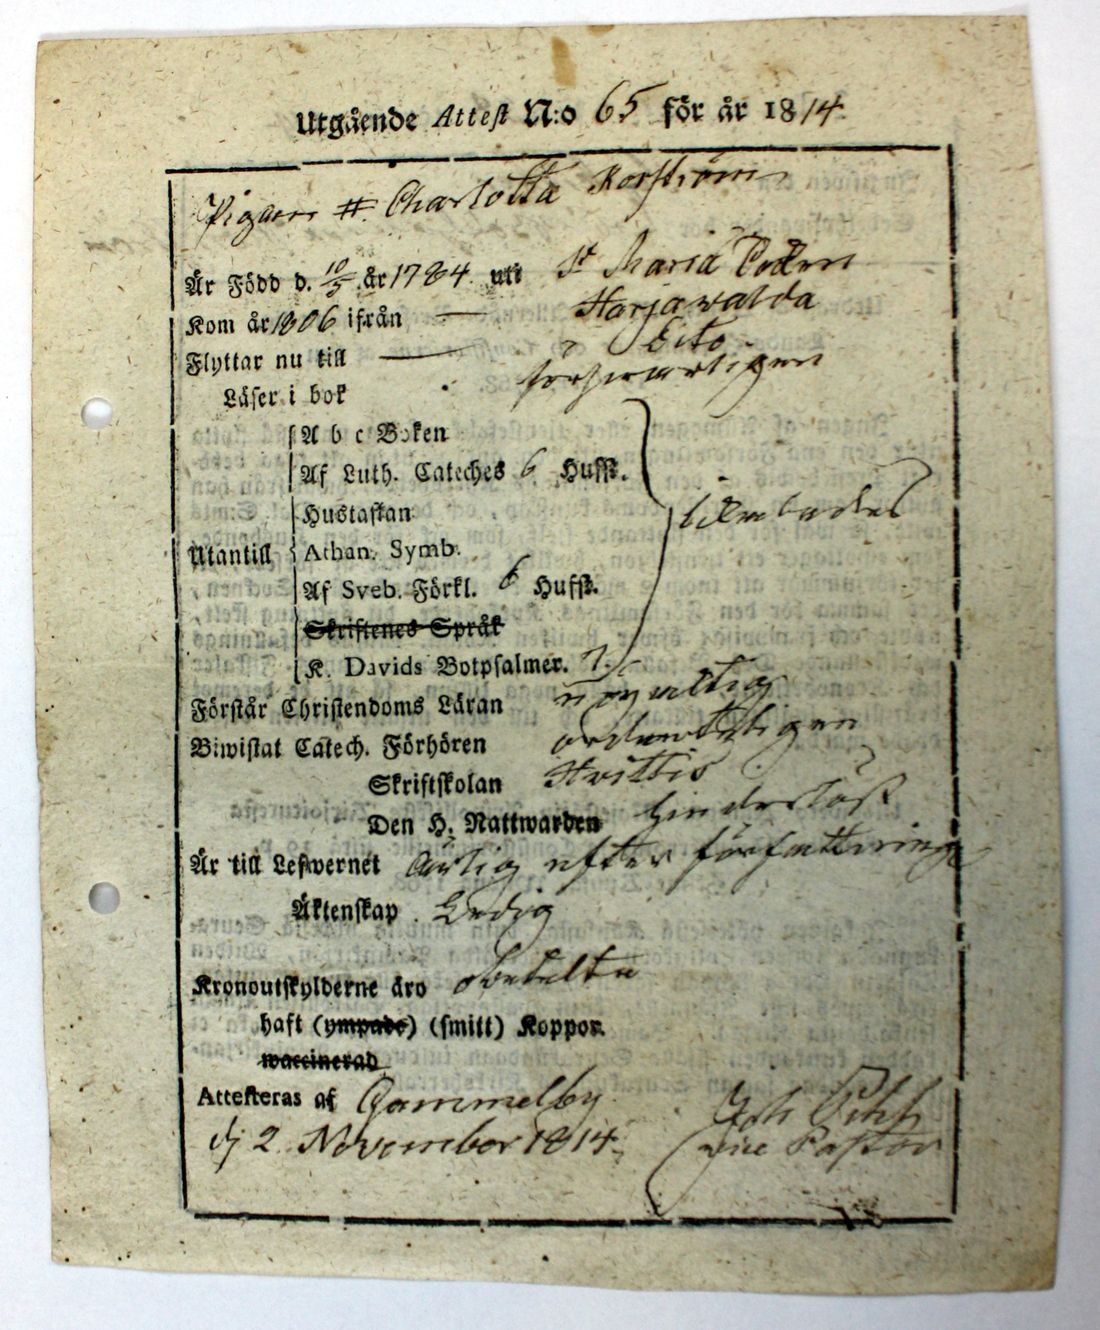 Utgående Attest N:o 65 för år 1814
Pigan Charlotta Korström
Är Född d. 10/5 år 1784 uti St Maria Socken
Kom år 1806 ifrån — Harjawalda
Flyttar nu till — Eito
Läser i bok försvarligen
A b c Boken
Af Luth. Cateches 6 Hufst.
Hustaflan
Utantill Athan. Symb.
Af Sveb. Förkl. 6 Hufst.
Skriftenes Språk
K. Davids Botpsalmer. 7.
Förstår Christendoms Läran
Biwistat Catech. Förhören ordenteligen
Skriftskolan Hvittis
Den H. Nattwarden
Är till Lefwernet ärlig efter författning
Äktenskap Ledig
Kronoutskylderne äro obetalta
haft (ympade) (smitt) Koppor.
waccinerad
Attesteras af Gammelby
d 2 November 1814.
Vice Pastor